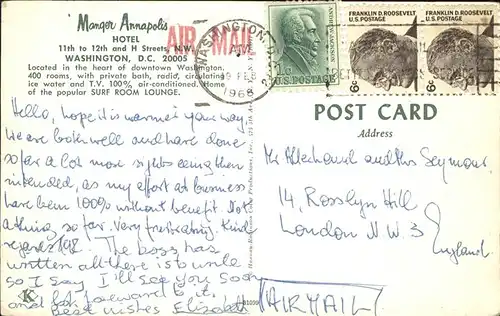 Manger Annapolis
HOTEL
11th to 12th and H Streets, N.W.
WASHINGTON, D.C. 20005
Located in the heart of downtown Washington.
400 rooms, with private bath, radio, circulating
ice water and T.V. 100% air-conditioned. Home
of the popular SURF ROOM LOUNGE.
AIR MAIL
WASHINGTON, D.C.
FEB
1968
U.S. POSTAGE
FRANKLIN D. ROOSEVELT
U.S. POSTAGE
6c
FRANKLIN D. ROOSEVELT
U.S. POSTAGE
6c
POST CARD
Address
Hello, hope it is warmer your way.
We are both well and have done
so far a lot more sights eing then
intended, as my effort at business
have been 100% without benefit. Not
a thing, so far. Very frustrating. Kind
regards
The boss has
written all there is to write
so I say I'll see you soon
and look forward to it.
Best wishes Elizabeth
Mr and Mrs Seymour
14, Rosslyn Hill
London N.W.3
England
AIRMAIL
K